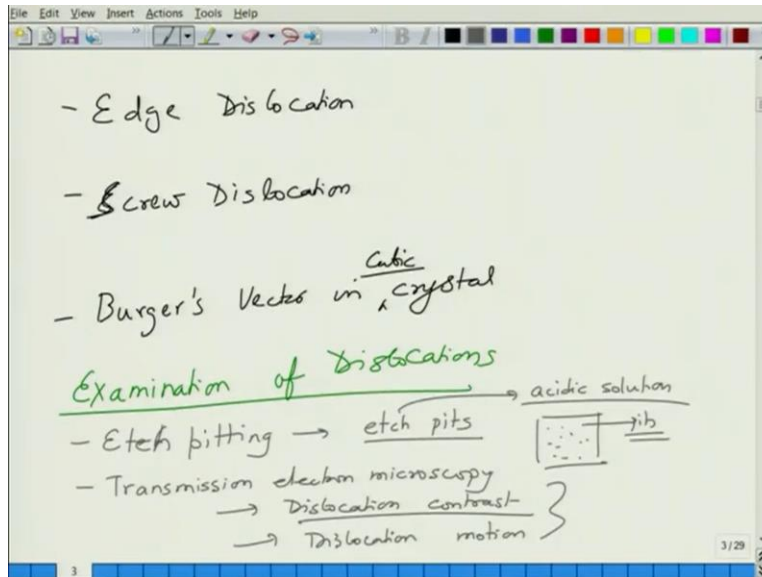 File Edit View Insert Actions Tools Help
- Edge Dislocation
- Screw Dislocation
Cubic
- Burger's Vector in ^ crystal
Examination of Dislocations
- Etch pitting → etch pits → acidic solution
- Transmission electron microscopy
→ Dislocation contrast
→ Dislocation motion
3/29
3